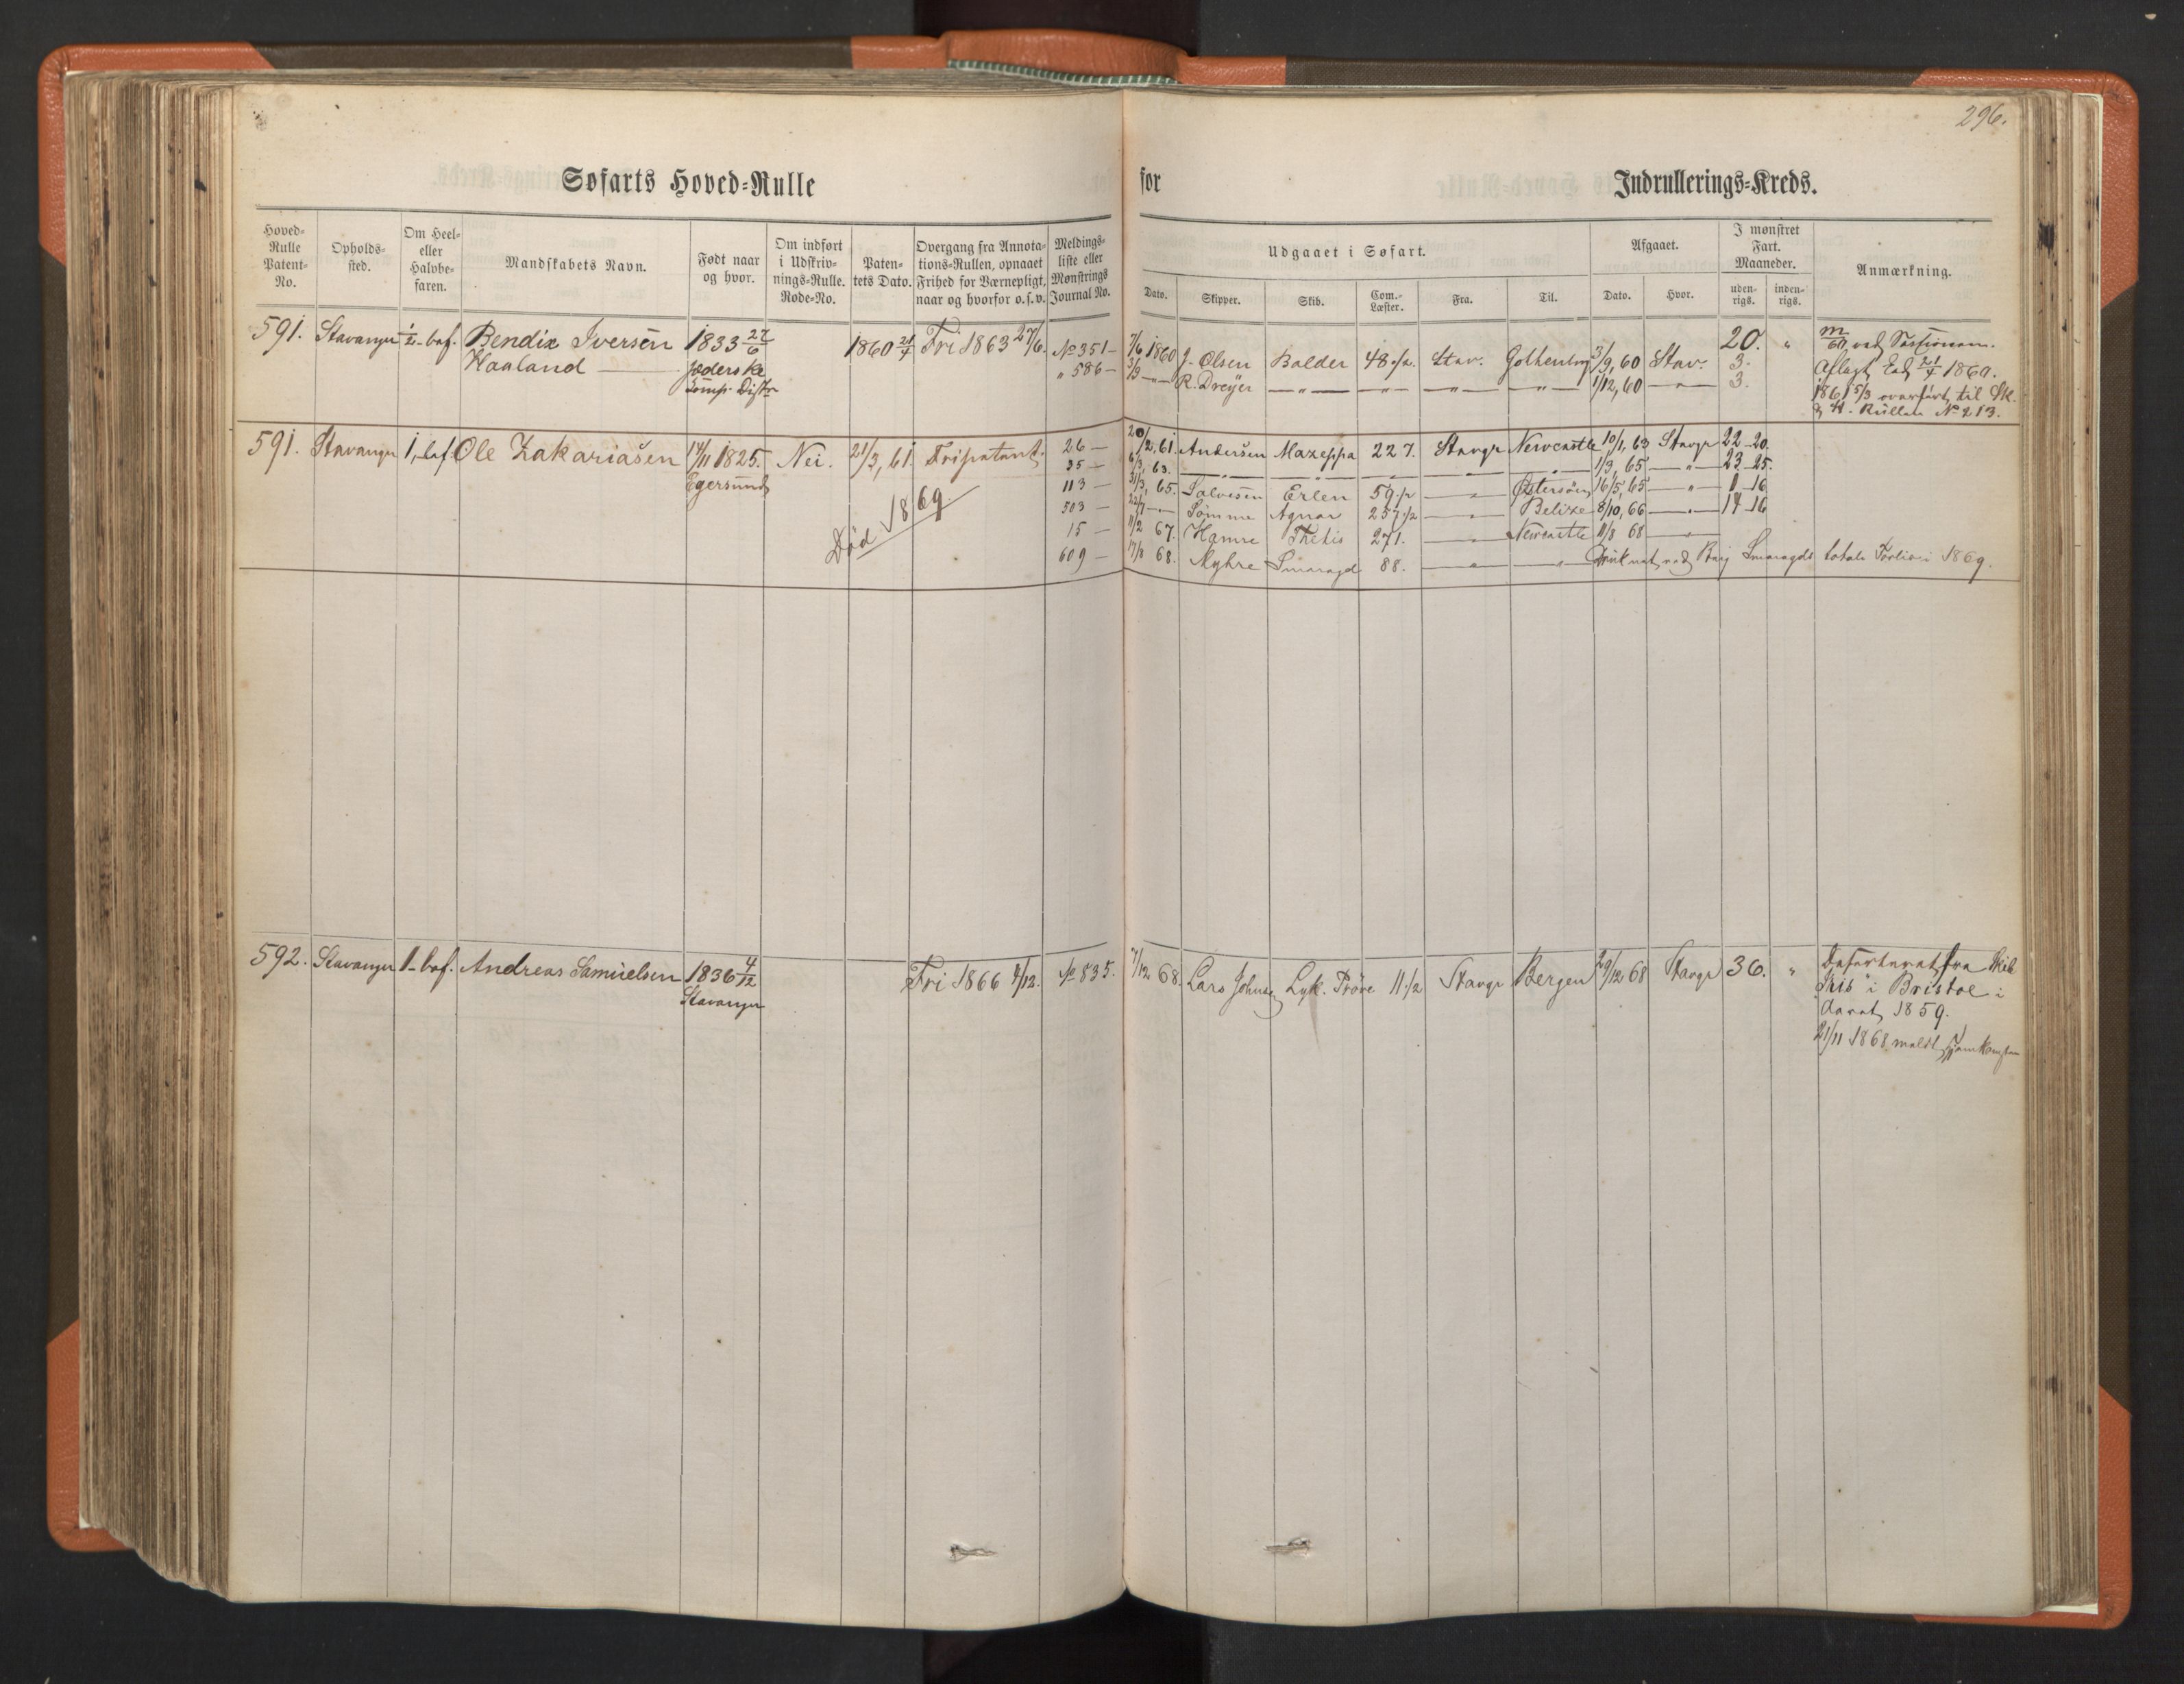 296.
Søfarts Hoved-Rulle for Indrullerings-Kreds.
Hoved-Rulle Patent-No. Opholds-sted. Om Heel- eller Halvbe-faren. Mandskabets Navn. Født naar og hvor. Om indført i Udskriv-nings-Rulle. Rode-No. Paten-tets Dato. Overgang fra Annota-tions-Rullen, opnaaet Frihed for Værnepligt, naar og hvorfor o.s.v. Meldings-liste eller Mønstrings Journal No.
Udgaaet i Søfart. Afgaaet. I mønstret Fart. Maaneder. Anmærkning.
Dato. Skipper. Skib. Com.-Læster. Fra. Til. Dato. Hvor. uden-rigs. inden-rigs.
591. Stavanger ½-bef. Bendix Iversen 1833 27/6 1860 21/4 Fri 1863 27/6. No 351 — 7/6 1860 J. Olsen Balder 48 ½. Stav. Gothenborg 3/9, 60 Stav. 20. 3. " m/60 ved Sessionen.
Haaland — Jæderske Komp. Distr " 586 — 3/9 —"— R. Dreyer —"— —"— —"— —"— 1/12, 60 —"— 3. Aflagt Ed 21/4 1860.
1861 5/3 overført til Sk.
& H. Rullen No 213.
591. Stavanger 1,-bef. Ole Zakariasen 14/11 1825. Nei. 21/3, 61. Fripatent. 26 — 20/2, 61. Andersen Mazeppa 227. Stavgr Newcastle 10/1, 63 Stavgr 22-20.
Egersund 35 — 6/3, 63. —"— —"— —"— —"— —"— 1/3, 65 —"— 23-25.
113 — 31/3, 65. Salvesen Erlen 59 ½ —"— Østersøen 16/5, 65 —"— 1-16
Død 1869 503 — 22/7 —"— Sømme Agnar 257 ½ —"— Belize 8/10, 66 —"— 14-16
15 — 11/2 67. Hamre Thetis 271. —"— Newcastle 11/8 68 —"—
609 — 17/8 68. Myhre Smaragd 88. —"— —"— Druknet ved Brig Smaragds totale Forlis i 1869.
592. Stavanger 1-bef. Andreas Samuelsen 1836 4/12 Fri 1866 4/12. No 835. 7/12 68. Lars Johns. Lyk. Prøve 11 ½ Stavgr Bergen 29/12 68 Stavgr 36. " Deserteret fra Skib
Stavanger Iris i Bristol i
Aaret 1859.
21/11 1868 meldt Hjemkomsten